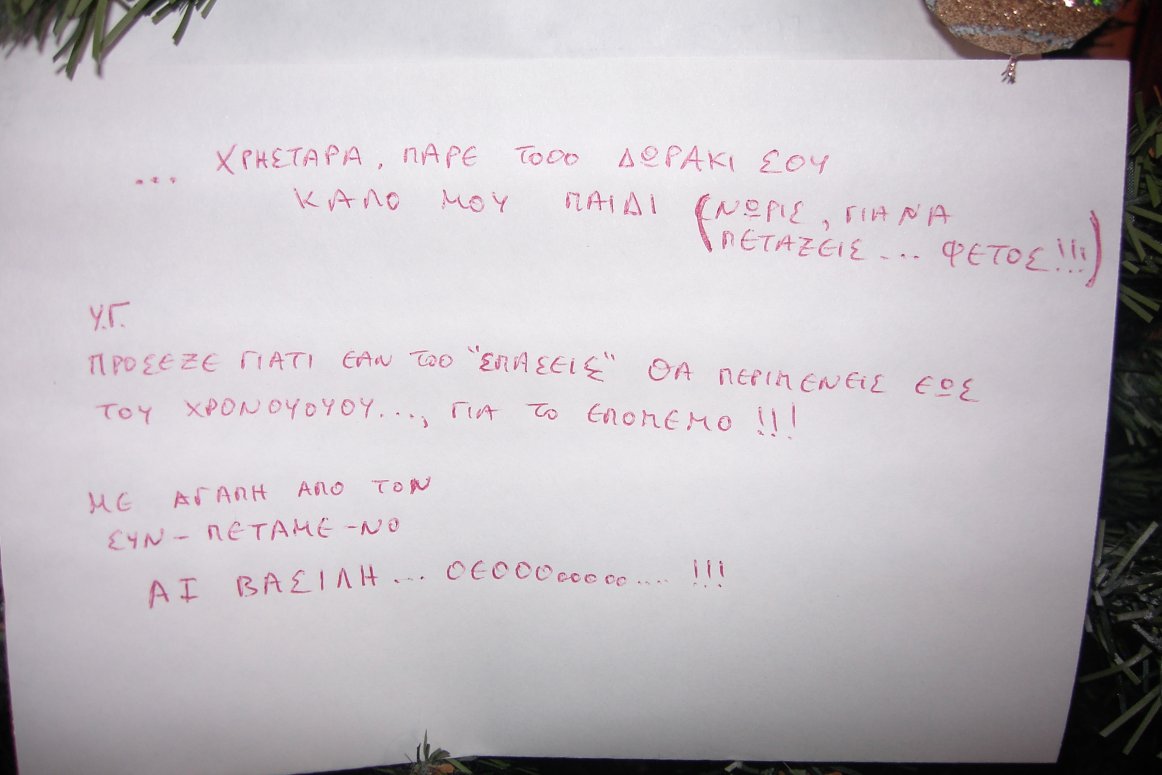 ... ΧΡΗΣΤΑΡΑ, ΠΑΡΕ ΤΟΟΟ ΔΩΡΑΚΙ ΣΟΥ
ΚΑΛΟ ΜΟΥ ΠΑΙΔΙ (ΝΩΡΙΣ, ΓΙΑ ΝΑ
ΠΕΤΑΞΕΙΣ.... ΦΕΤΟΣ!!!)
Υ.Γ.
ΠΡΟΣΕΞΕ ΓΙΑΤΙ ΕΑΝ ΤΟΟ "ΣΠΑΣΕΙΣ" ΘΑ ΠΕΡΙΜΕΝΕΙΣ ΕΩΣ
ΤΟΥ ΧΡΟΝΟΥΟΥΟΥ...., ΓΙΑ ΤΟ ΕΠΟΜΕΜΟ !!!
ΜΕ ΑΓΑΠΗ ΑΠΟ ΤΟΝ
ΣΥΝ-ΠΕΤΑΜΕ-ΝΟ
ΑΙ ΒΑΣΙΛΗ... ΟΕΟΟΟοοοοο.... !!!